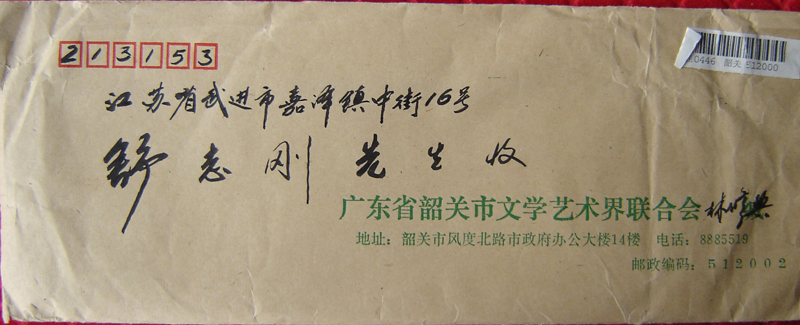 213153
0446 韶关 512000
江苏省武进市嘉泽镇中街16号
舒志刚先生收
广东省韶关市文学艺术界联合会
地址：韶关市风度北路市政府办公大楼14楼 电话：8885519
邮政编码：512002